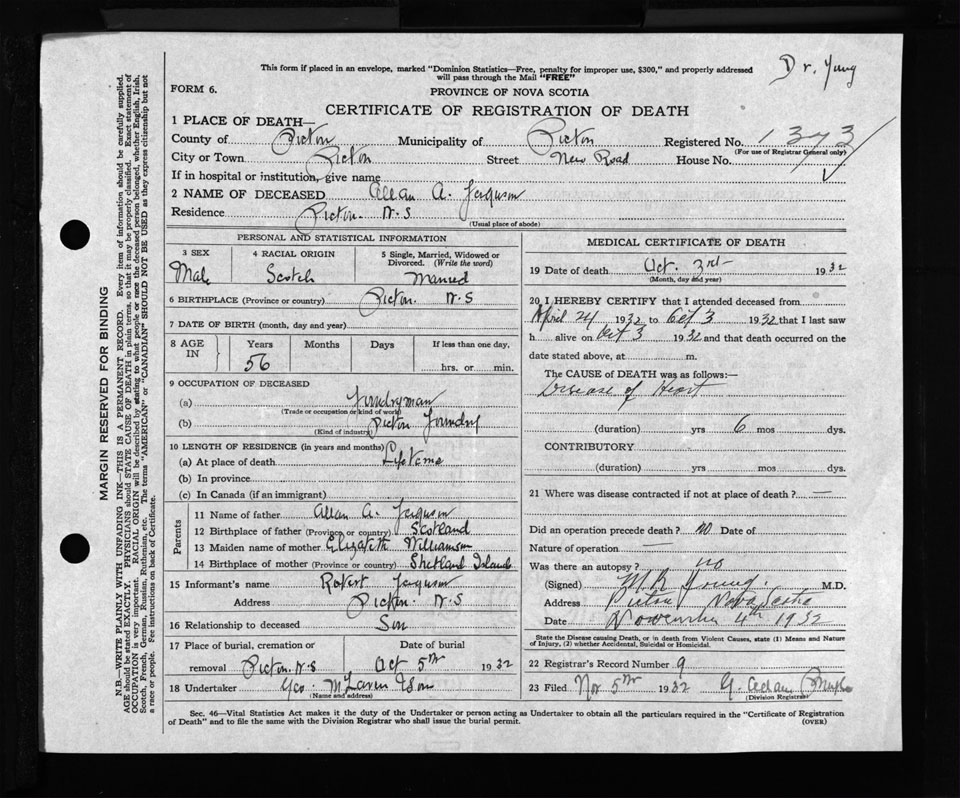 Dr. Yung
This form if placed in an envelope, marked "Dominion Statistics—Free, penalty for improper use, $300," and properly addressed
will pass through the Mail "FREE"
FORM 6.
PROVINCE OF NOVA SCOTIA
CERTIFICATE OF REGISTRATION OF DEATH
1 PLACE OF DEATH—
County of Pictou Municipality of Pictou Registered No. 1373
(For use of Registrar General only)
City or Town Pictou Street New Road House No.
If in hospital or institution, give name
2 NAME OF DECEASED Allan A. Ferguson
Residence Pictou. N.S
(Usual place of abode)
PERSONAL AND STATISTICAL INFORMATION
3 SEX 4 RACIAL ORIGIN 5 Single, Married, Widowed or Divorced. (Write the word)
Male Scotch Married
6 BIRTHPLACE (Province or country) Pictou. N.S
7 DATE OF BIRTH (month, day and year)
8 AGE IN Years Months Days If less than one day,
56 hrs. or min.
9 OCCUPATION OF DECEASED
(a) Foundryman
(Trade or occupation or kind of work)
(b) Pictou Foundry
(Kind of industry)
10 LENGTH OF RESIDENCE (in years and months)
(a) At place of death Lifetime
(b) In province
(c) In Canada (if an immigrant)
Parents
11 Name of father Allan A. Ferguson
12 Birthplace of father (Province or country) Scotland
13 Maiden name of mother Elizabeth Williamson
14 Birthplace of mother (Province or country) Shetland Island
15 Informant's name Robert Ferguson
Address Pictou. N.S
16 Relationship to deceased Son
17 Place of burial, cremation or Date of burial
removal Pictou. N.S Oct 5th 1932
18 Undertaker Geo. McLaren & Son
(Name and address)
MEDICAL CERTIFICATE OF DEATH
19 Date of death Oct. 3rd 1932
(Month, day and year)
20 I HEREBY CERTIFY that I attended deceased from
April 24 1932 to Oct 3 1932 that I last saw
h alive on Oct 3 1932 and that death occurred on the
date stated above, at m.
The CAUSE OF DEATH was as follows:—
Disease of Heart
(duration) yrs 6 mos dys.
CONTRIBUTORY
(duration) yrs. mos. dys.
21 Where was disease contracted if not at place of death? —
Did an operation precede death? no Date of
Nature of operation —
Was there an autopsy? no
(Signed) M R Young. M.D.
Address Pictou Nova Scotia
Date November 4th 1932
State the Disease causing Death, or in death from Violent Causes, state (1) Means and Nature
of Injury, (2) whether Accidental, Suicidal or Homicidal.
22 Registrar's Record Number 9
23 Filed Nov 5th 1932 G.
(Division Registrar)
Sec. 46—Vital Statistics Act makes it the duty of the Undertaker or person acting as Undertaker to obtain all the particulars required in the "Certificate of Registration
of Death" and to file the same with the Division Registrar who shall issue the burial permit. (OVER)
MARGIN RESERVED FOR BINDING
N.B.—WRITE PLAINLY WITH UNFADING INK—THIS IS A PERMANENT RECORD. Every item of information should be carefully supplied.
AGE should be stated EXACTLY. PHYSICIANS should STATE CAUSE OF DEATH in plain terms, so that it may be properly classified. Exact statement of
OCCUPATION is very important. RACIAL ORIGIN will be described by stating to what people or race the deceased person belonged, whether English, Irish,
Scotch, French, German, Russian, Ruthenian, etc. The terms "AMERICAN" or "CANADIAN" SHOULD NOT BE USED as they express citizenship but not
a race or people. See instructions on back of Certificate.